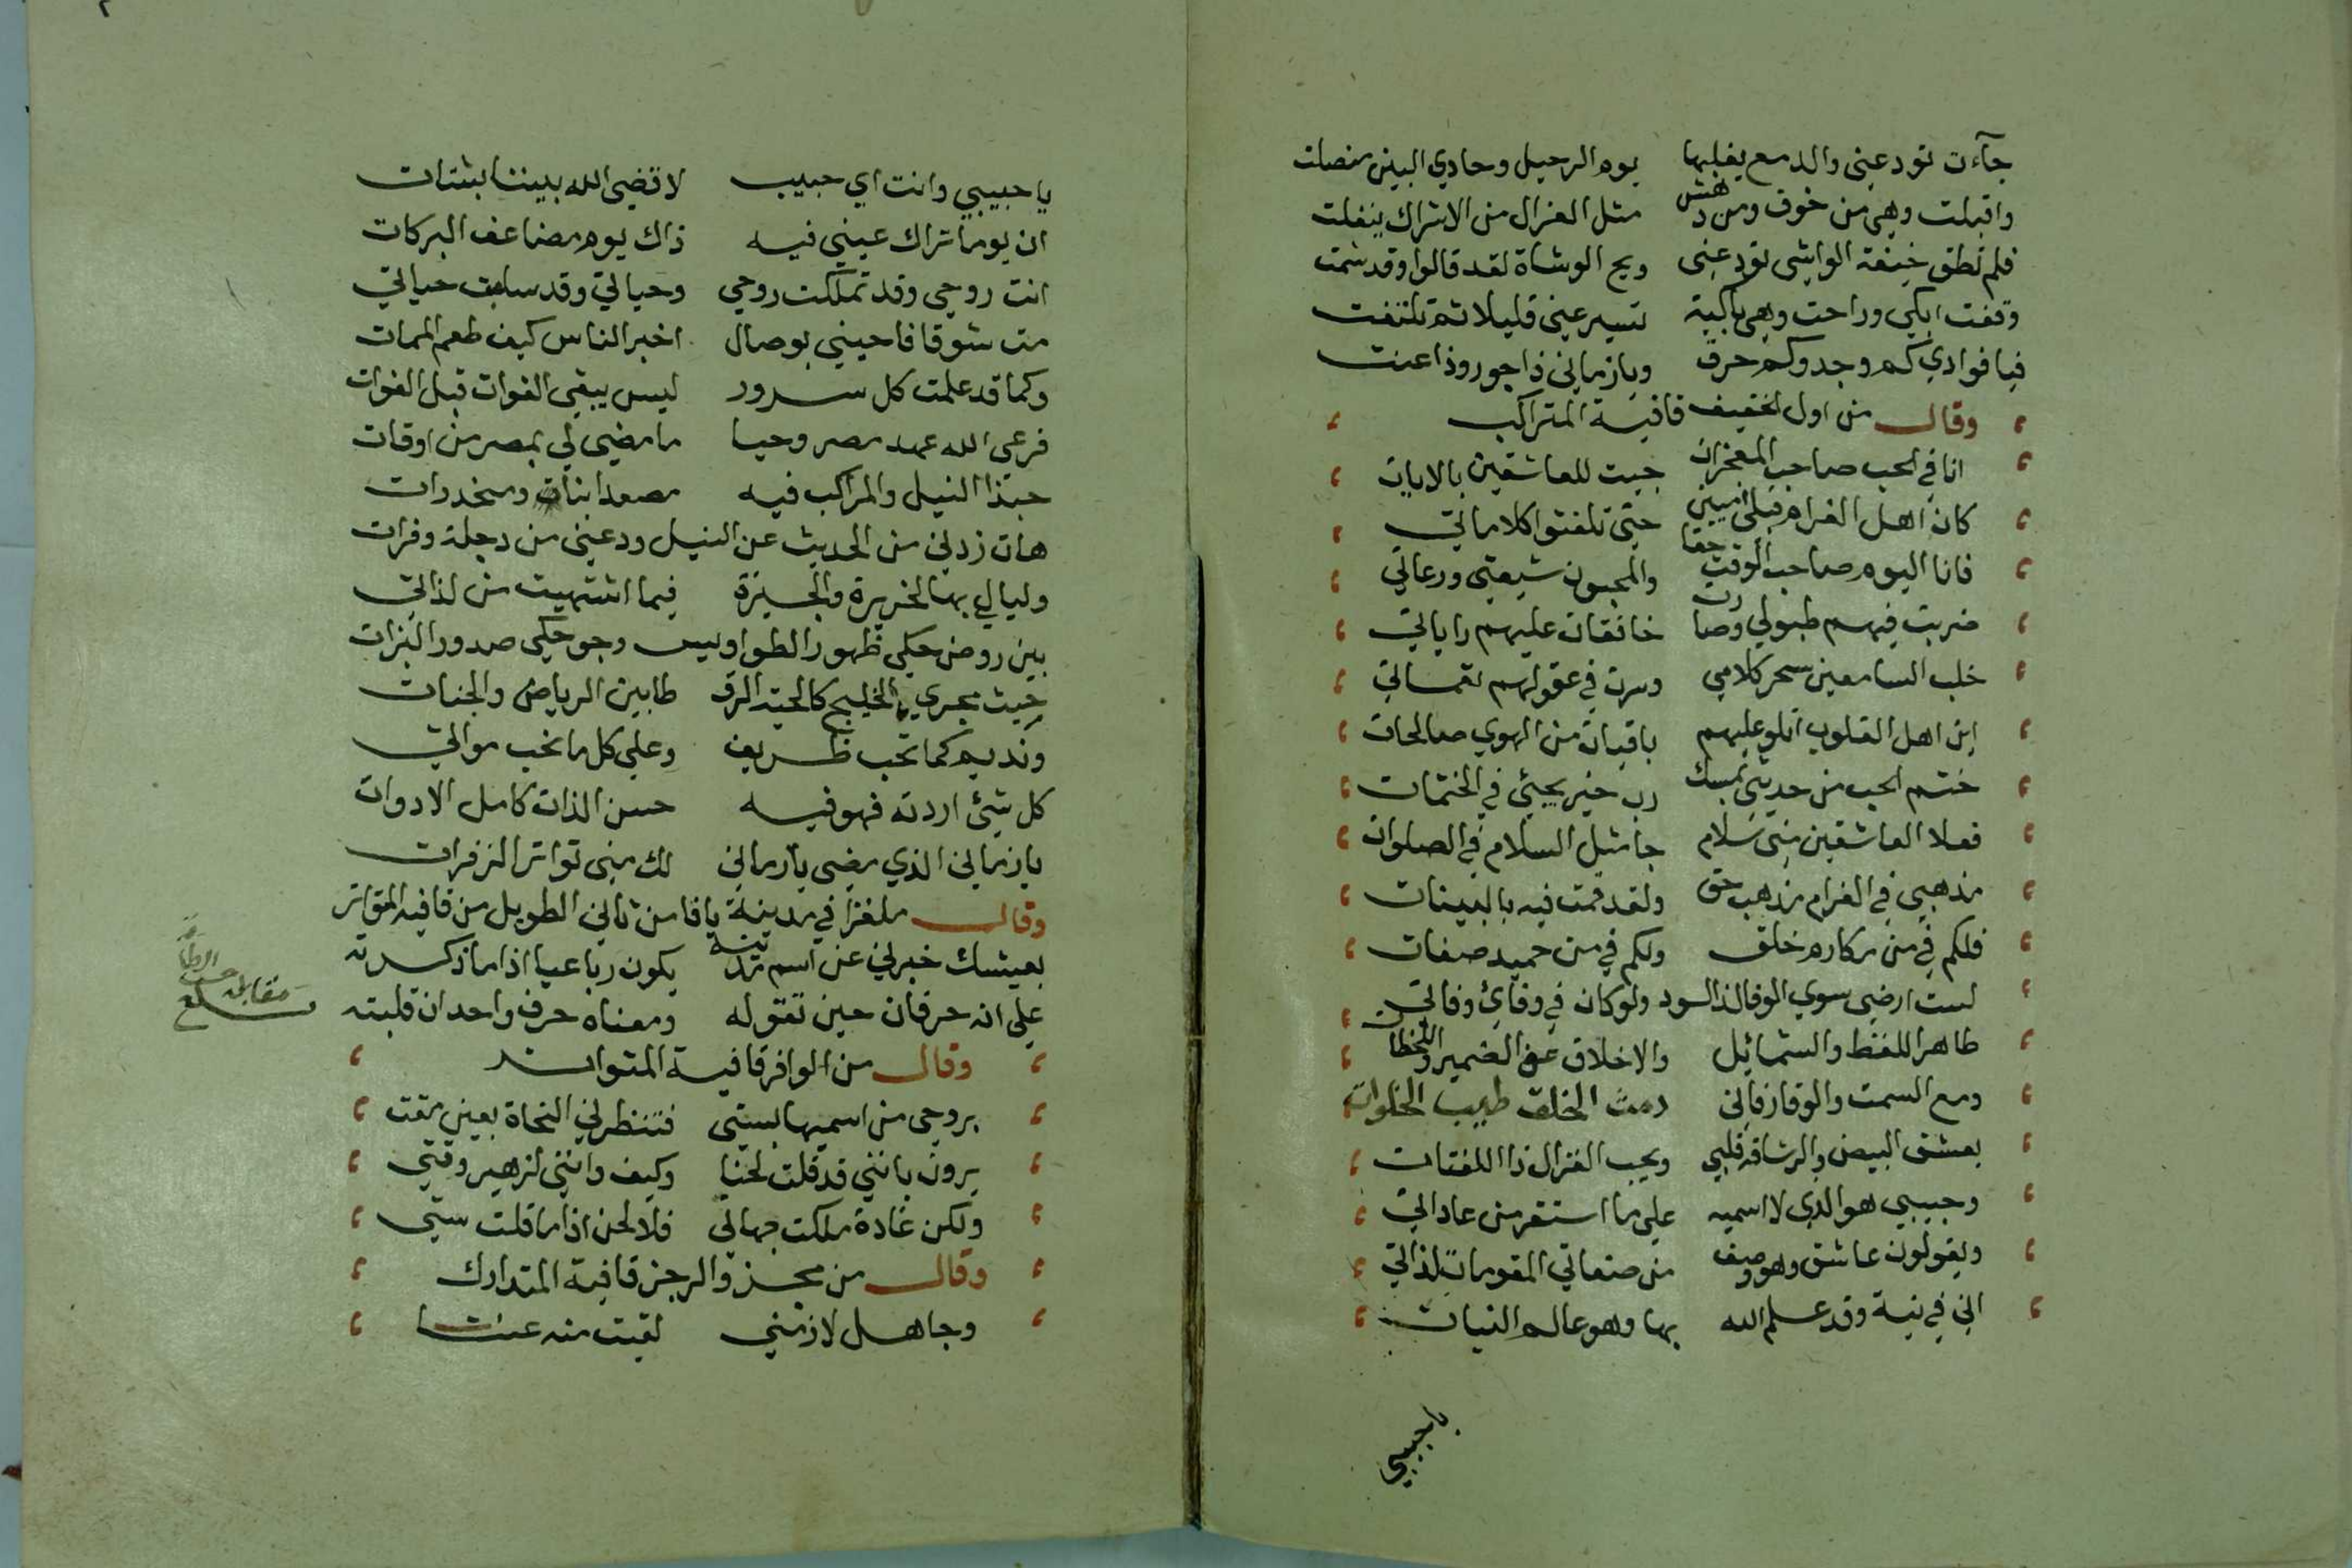 جآءت تودعنى والدمع يغلبها يوم الرحيل وحادي البين منصلت
واقبلت وهى من خوف ومن دهش مثل الغزال من الاشراك ينفلت
فلم تطق خيفة الواشى تودعنى ويح الوشاة لقد قالوا وقد شمت
وقفت ابكي وراحت وهى باكية تسير عنى قليلا ثم تلتفت
فيا فوادي كم وجد وكم حرق ويا زمانى ذا جور وذا عنت
وقال من اول الخفيف قافية المتراكب
انا في الحب صاحب المعجزات جيت للعاشقين بالايات
كان اهل الغرام قبلى اميين حتى تلقنوا كلماتي
فانا اليوم صاحب الوقت حقا والمحبون شيعتى ورعاتي
ضربت فيهم طبولي وصارت خافقات عليهم راياتي
خلب السامعين سحر كلامي وسرت في عقولهم نفثاتي
اين اهل القلوب اتلو عليهم باقيات من الهوي صالحات
ختم الحب من حديثى بمسك رب خير يجئي في الختمات
فعلا العاشقين منى سلام جا مثل السلام في الصلوات
مذهبي في الغرام مذهب حق ولقد قمت فيه بالبينات
فلكم في من مكارم خلق ولكم في من حميد صفات
لست ارضى سوي الوفا لذا الود ولو كان في وفائ وفاتي
طاهر اللفظ والشمائل والاخلاق عف الضمير واللحظات
ومع السمت والوقار فانى دمث الخلق طيب الخلوات
يعشق البيض والرشاقة قلبي ويحب الغزال ذا اللفتات
وحبيبي هو الذي لا اسميه على ما استقر من عاداتي
ويقولون عاشق وهو وصف من صفاتي المقومات لذاتي
انى في نية وقد علم الله بها وهو عالم النيات
ياحبيبي
يا حبيبي وانت اي حبيب لا قضى الله بيننا بشتات
ان يوما تراك عيني فيه ذاك يوم مضاعف البركات
انت روحي وقد تملكت روحي وحياتي وقد سلبت حياتي
مت شوقا فاحيني بوصال اخبر الناس كيف طعم الممات
وكما قد علمت كل سرور ليس يبقى الفوات قبل الفوات
فرعى الله عهد مصر وحيا ما مضى لي بمصر من اوقات
حبذا النيل والمراكب فيه مصعدات ومنحدرات
هات زدني من الحديث عن النيل ودعنى من دجلة وفرات
وليالي بها لجزيرة والجيزة فيما اشتهيت من لذاتي
بين روض حكى ظهور الطواويس وجو حكى صدور البزات
حيث يجري الخليج كالحية الرقطا بين الرياض والجنات
ونديم كما تحب ظريف وعلى كل ما نحب مواتي
كل شئ اردته فهو فيه حسن الذات كامل الادوات
يا زمانى الذي مضى يا زمانى لك منى تواتر الزفرات
وقال ملغزا في مدينة يافا من ثاني الطويل من قافية المتواتر
بعيشك خبرني عن اسم مدينة يكون رباعيا اذا ما ذكرته
على انه حرفان حين تقوله ومعناه حرف واحد ان قلبته
بلغ مقابلة
وقال من الوافر قافية المتواتر
بروحى من اسميها بستى فتنظرني النحاة بعين مقت
يرون بانني قد قلت لحنا وكيف وانني لزهير وقتي
ولكن غادة ملكت جهاتي فلا لحن اذا ما قلت ستي
وقال من مجزو الرجز قافية المتدارك
وجاهل لازمني لقيت منه عنتا